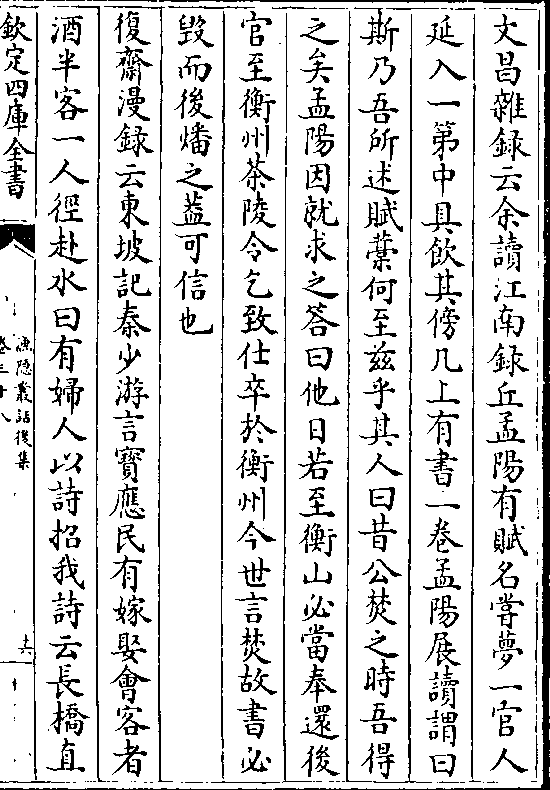 文昌雜録云余讀江南録丘孟陽有賦名嘗夢一官人
延入一第中具飲其傍几上有書一卷孟陽展讀謂曰
斯乃吾所述賦藁何至兹乎其人曰昔公焚之時吾得
之矣孟陽因就求之答曰他日若至衡山必當奉還後
官至衡州茶陵令乞致仕卒於衡州今世言焚故書必
毁而後燔之葢可信也
復齋漫録云東坡記秦少游言寶應民有嫁娶會客者
酒半客一人徑赴水曰有婦人以詩招我詩云長橋直
欽定四庫全書
漁隠叢話後集
卷三十八
十六